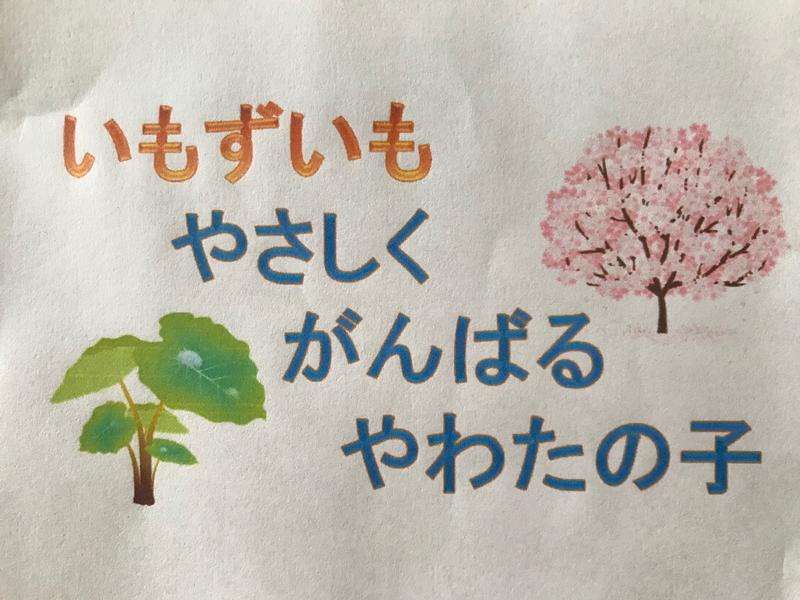 いもずいも
やさしく
がんばる
やわたの子